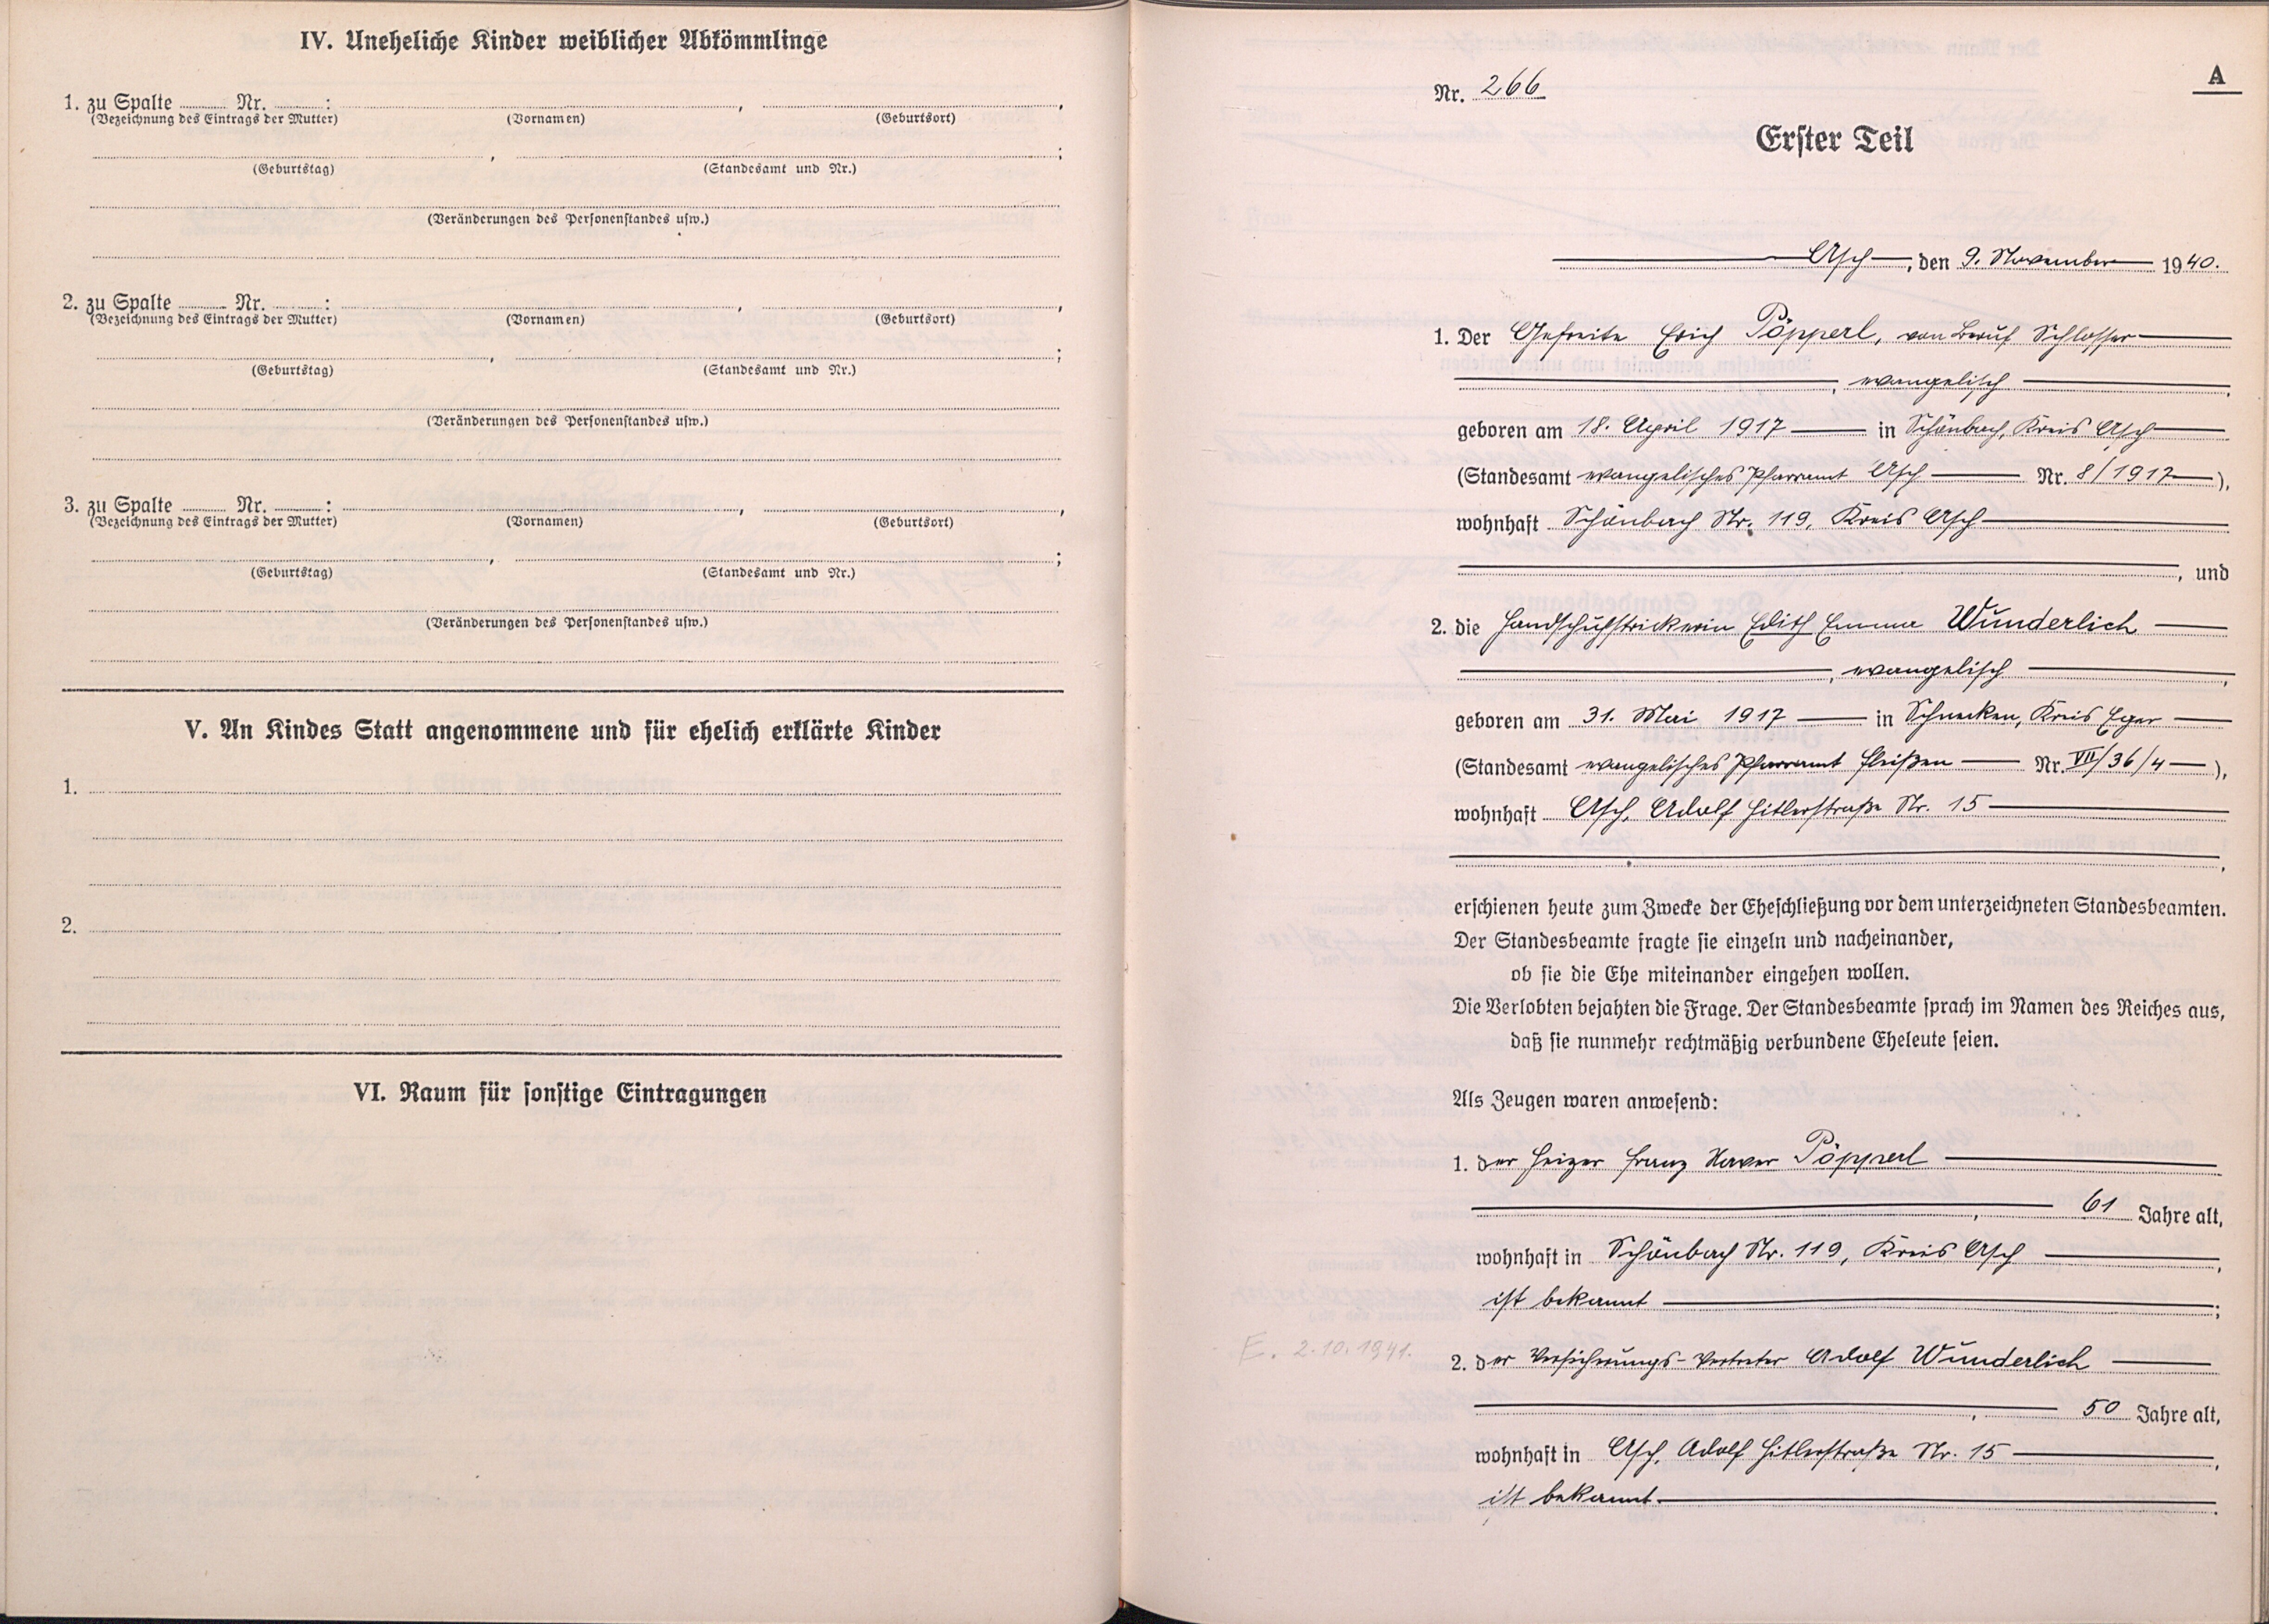 IV. Uneheliche Kinder weiblicher Abkömmlinge
1. zu Spalte ........ Nr. ........ : ........ , ........ ,
(Bezeichnung des Eintrags der Mutter) (Vornamen) (Geburtsort)
........ , ........ ;
(Geburtstag) (Standesamt und Nr.)
(Veränderungen des Personenstandes usw.)
2. zu Spalte ........ Nr. ........ : ........ , ........ ,
(Bezeichnung des Eintrags der Mutter) (Vornamen) (Geburtsort)
........ , ........ ;
(Geburtstag) (Standesamt und Nr.)
(Veränderungen des Personenstandes usw.)
3. zu Spalte ........ Nr. ........ : ........ , ........ ,
(Bezeichnung des Eintrags der Mutter) (Vornamen) (Geburtsort)
........ , ........ ;
(Geburtstag) (Standesamt und Nr.)
(Veränderungen des Personenstandes usw.)
V. An Kindes Statt angenommene und für ehelich erklärte Kinder
1.
2.
VI. Raum für sonstige Eintragungen
A
Nr. 266
Erster Teil
Asch, den 9. November 1940.
1. Der Gefreite Erich Pöpperl, von Beruf Schlosser
, evangelisch ,
geboren am 18. April 1917 in Schönbach, Kreis Asch
(Standesamt evangelisches Pfarramt Asch Nr. 8/1917 ),
wohnhaft Schönbach Nr. 119, Kreis Asch
, und
2. die Handschuhstrickerin Edith Emma Wunderlich
, evangelisch ,
geboren am 31. Mai 1917 in Schnecken, Kreis Eger
(Standesamt evangelisches Pfarramt Fleißen Nr. VII/36/4 ),
wohnhaft Asch, Adolf Hitlerstraße Nr. 15
,
erschienen heute zum Zwecke der Eheschließung vor dem unterzeichneten Standesbeamten.
Der Standesbeamte fragte sie einzeln und nacheinander,
ob sie die Ehe miteinander eingehen wollen.
Die Verlobten bejahten die Frage. Der Standesbeamte sprach im Namen des Reiches aus,
daß sie nunmehr rechtmäßig verbundene Eheleute seien.
Als Zeugen waren anwesend:
1. der Heizer Franz Xaver Pöpperl
, 61 Jahre alt,
wohnhaft in Schönbach Nr. 119, Kreis Asch ,
ist bekannt ;
E. 2.10.1941.
2. der Versicherungs-Vertreter Adolf Wunderlich
, 50 Jahre alt,
wohnhaft in Asch, Adolf Hitlerstraße Nr. 15 ,
ist bekannt .